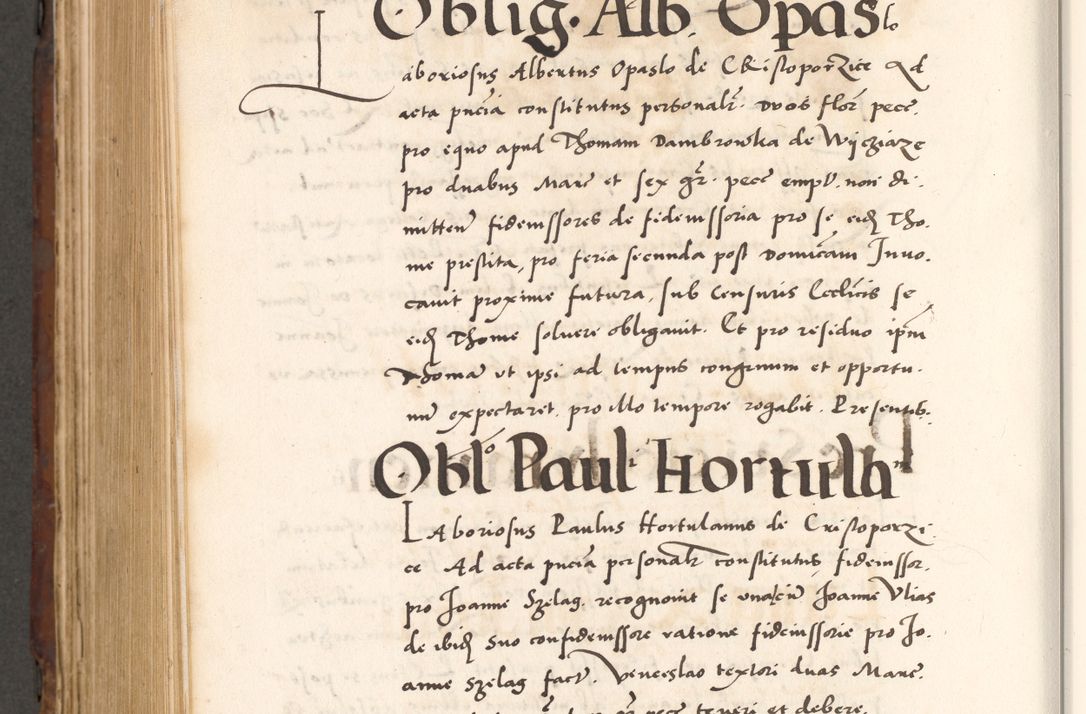 Oblig. Alb. Opaslo
Laboriosus Albertus Opaslo de CRistoporzice Ad
acta pncia constitutus personalr. Duos flor pecc.
pro equo apud Thomam Dambrowska de Wyciaze
pro duabus Marc et sex gr. pecc empt. non di.
mitten fideiussores de fideiussoria pro se eid Tho.
me prestita, pro feria secunda post Domicam Inuo.
cauit proxime futura, sub Censuris Ecclicis se
eid Thome soluere obligauit. Et pro residuo ipm
Thomam ut ipsi ad tempus congruum et opportu.
num expectaret, pro illo tempore rogabit. Presentib.
Oblo Pauli Hortulā
LAboriosus Paulus Hortulanus de Cristoporzi.
ce Ad acta pncia personalr constitutus, fideiussor.
pro Joanne Szelag. recognouit se una cum Joanne Vlias
de ibid suo confideiussore ratione fideiussorie pro Jo.
anne Szelag fact. Venceslao textori duas Marc.
pecc teneri et debere.